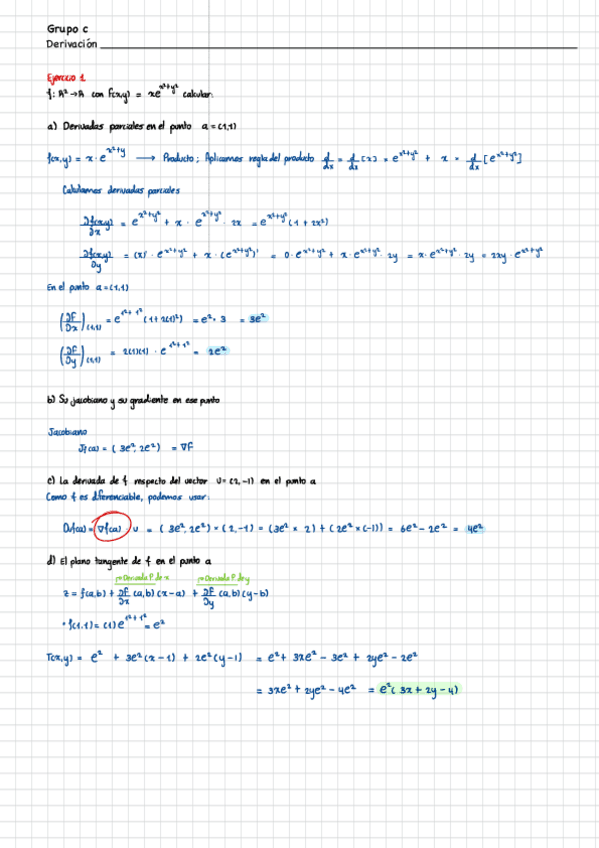 Grupo c
Derivación
Ejercicio 1
f: R² → R con f(x,y) = xe^(x²+y²) calcular:
a) Derivadas parciales en el punto a = (1,1)
f(x,y) = x · e^(x²+y) → Producto; Aplicamos regla del producto d/dx = d/dx (x) = e^(x²+y²) + x × d/dx [e^(x²+y²)]
Calculamos derivadas parciales
∂f(x,y)/∂x = e^(x²+y²) + x · e^(x²+y²) · 2x = e^(x²+y²) (1 + 2x²)
∂f(x,y)/∂y = (x)' · e^(x²+y²) + x · (e^(x²+y²))' = 0 · e^(x²+y²) + x · e^(x²+y²) · 2y = x · e^(x²+y²) · 2y = 2xy · e^(x²+y²)
En el punto a = (1,1)
(∂F/∂x)(1,1) = e^(1²+1²) (1+2(1)²) = e² · 3 = 3e²
(∂F/∂y)(1,1) = 2(1)(1) · e^(1²+1²) = 2e²
b) Su jacobiano y su gradiente en ese punto
Jacobiano
Jf(a) = (3e², 2e²) = ∇F
c) La derivada de f respecto del vector v = (2,-1) en el punto a
Como f es diferenciable, podemos usar:
Dvf(a) = ∇f(a) · v = (3e², 2e²) × (2,-1) = (3e² × 2) + (2e² × (-1)) = 6e² - 2e² = 4e²
d) El plano tangente de f en el punto a
→ Derivada P. de x → Derivada P. de y
z = f(a,b) + ∂F/∂x (a,b) (x-a) + ∂F/∂y (a,b) (y-b)
• f(1,1) = (1) e^(1²+1²) = e²
T(x,y) = e² + 3e² (x-1) + 2e² (y-1) = e² + 3xe² - 3e² + 2ye² - 2e²
= 3xe² + 2ye² - 4e² = e² (3x + 2y - 4)